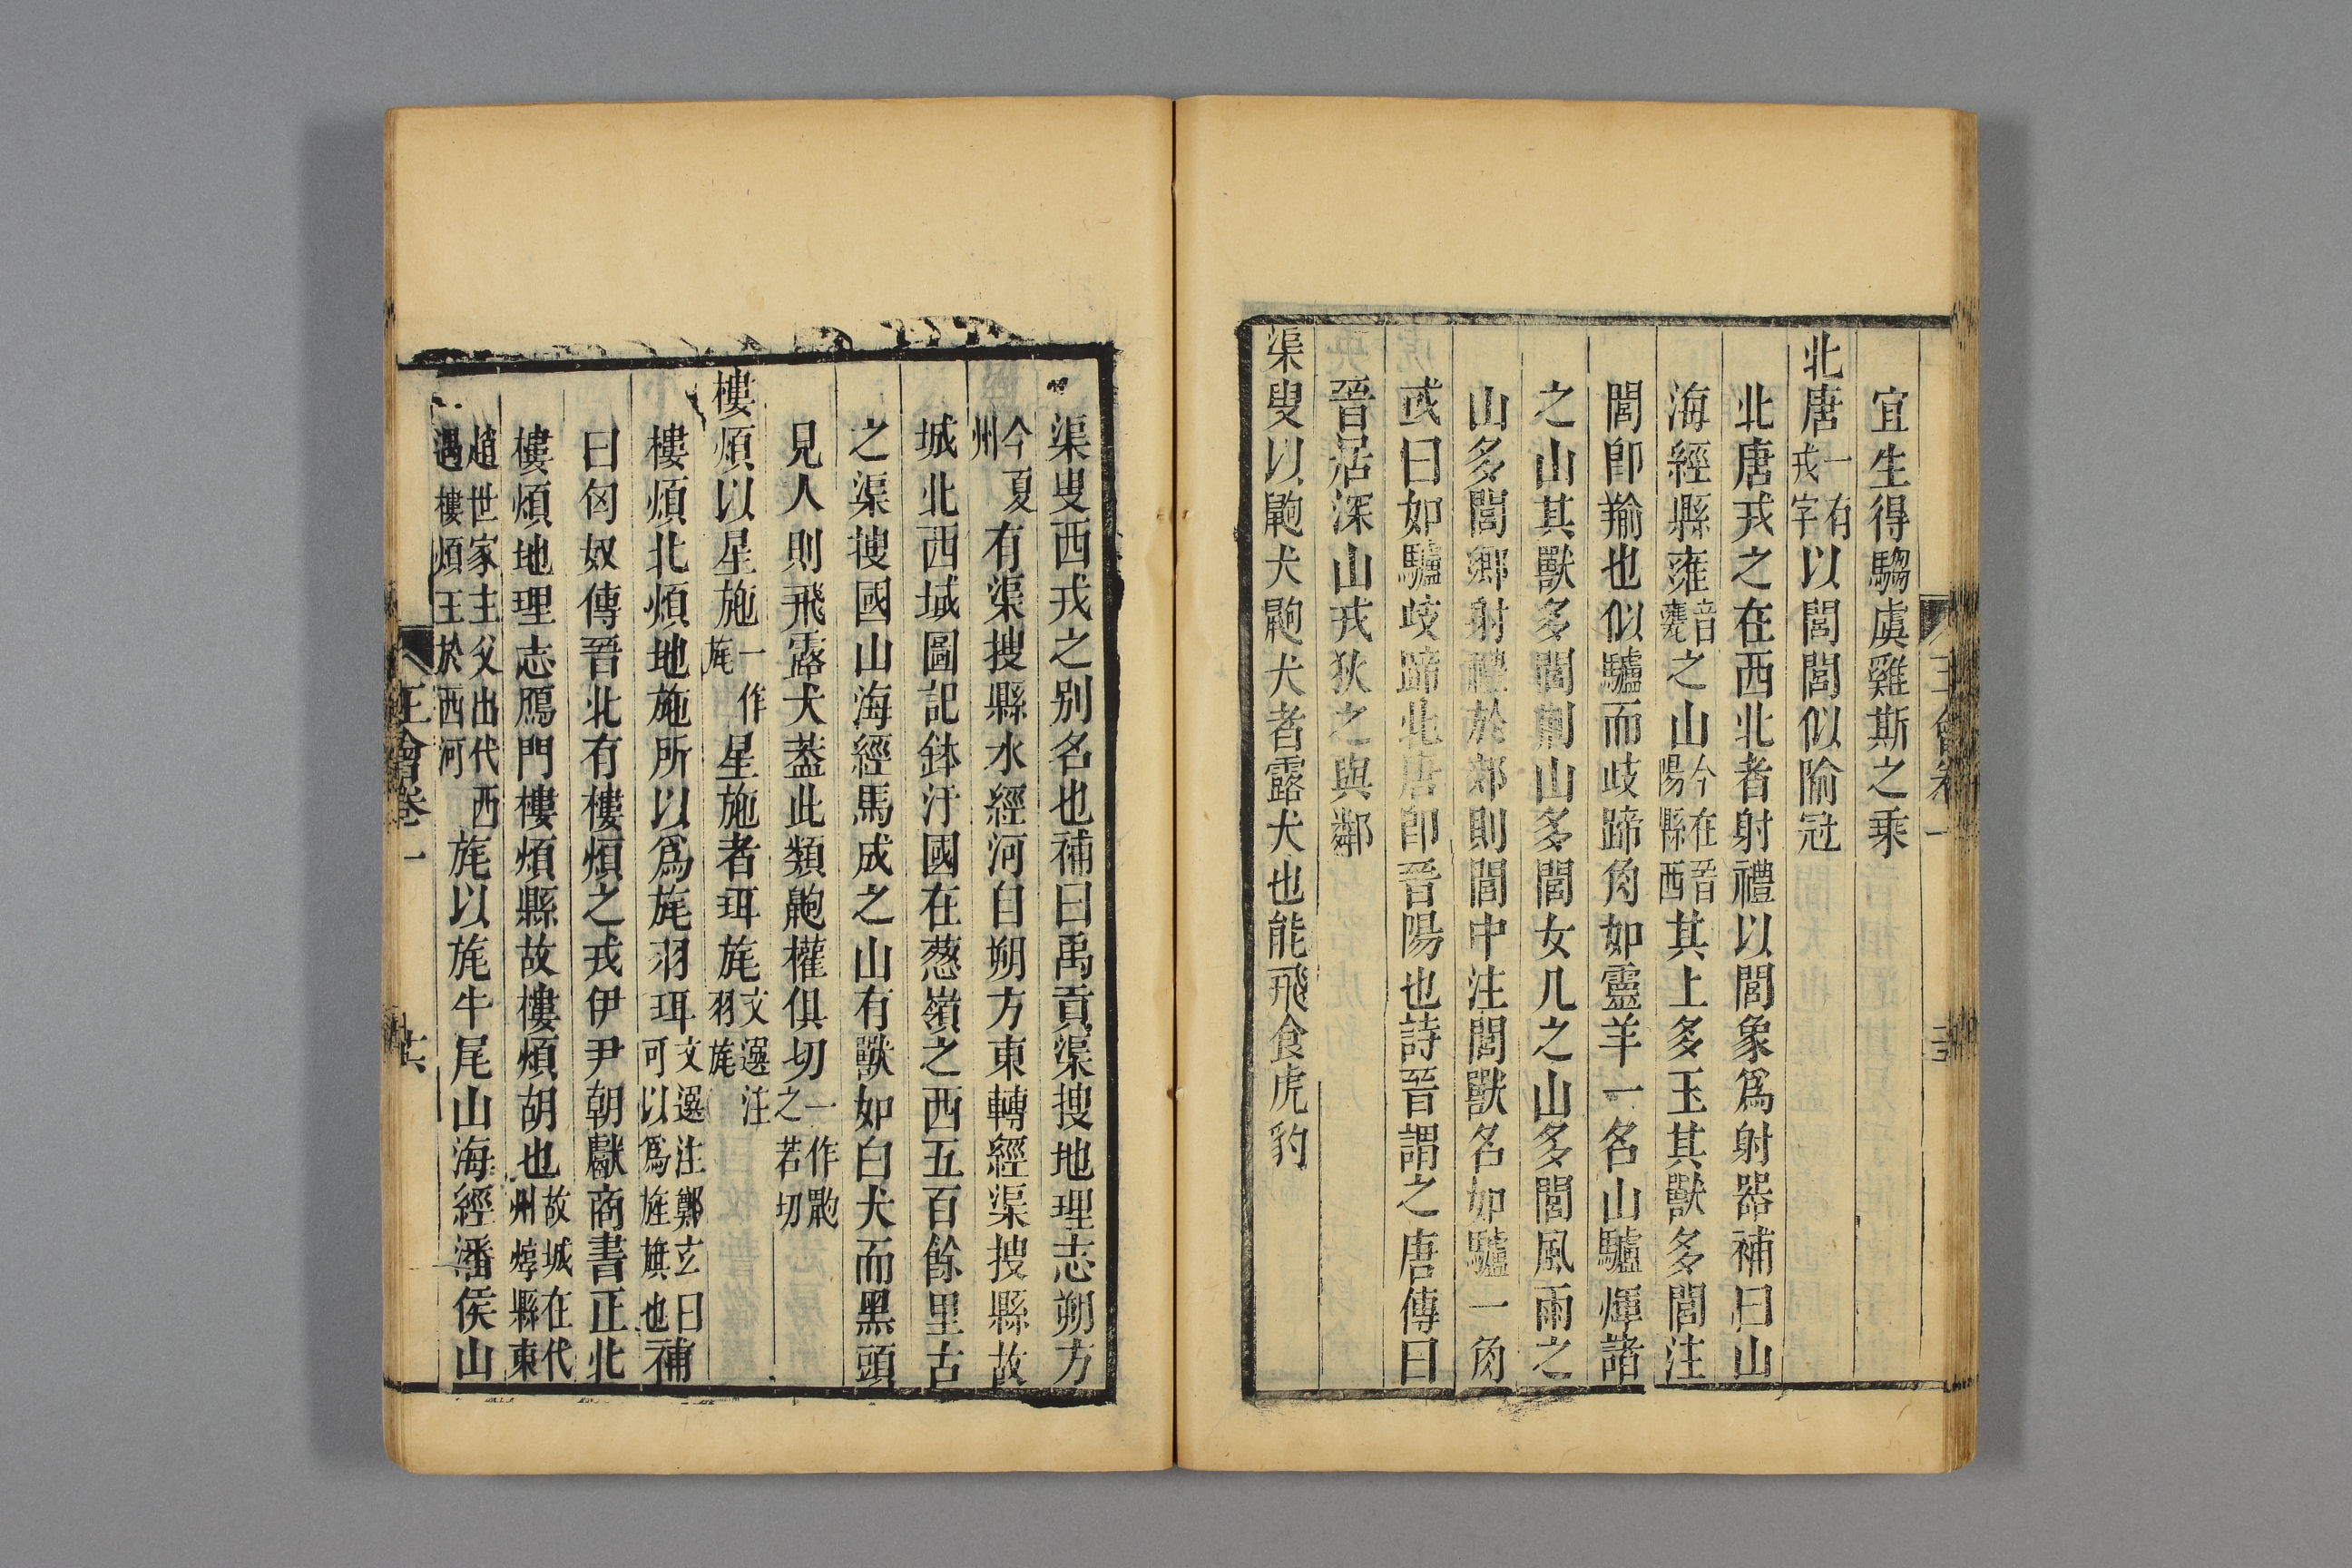 宜生得騶虞雞斯之乘
北唐一有戎字以閭閭似隃冠
北唐戎之在西北者射禮以閭象爲射器補曰山
海經縣雍音甕之山今在晉陽縣西其上多玉其獸多閭注
閭卽羭也似驢而歧蹄角如靈羊一名山驢煇諸
之山其獸多閭荆山多閭女几之山多閭風雨之
山多閭鄉射禮於郊則閭中注閭獸名如驢一角
或曰如驢歧蹄北唐卽晉陽也詩晉謂之唐傳曰
晉居深山戎狄之與鄰
渠叟以鼩犬鼩犬者露犬也能飛食虎豹
王會卷一
渠叟西戎之别名也補曰禹貢渠搜地理志朔方
今夏州有渠搜縣水經河自朔方東轉經渠搜縣故
城北西域圖記鉢汗國在葱嶺之西五百餘里古
之渠搜國山海經馬成之山有獸如白犬而黑頭
見人則飛露犬葢此類鼩權俱切一作鼩之若切
樓煩以星施一作旄星施者珥旄文選注羽旄
樓煩北煩地施所以爲旄羽珥文選注鄭玄曰可以爲旌旗也補
曰匈奴傳晉北有樓煩之戎伊尹朝獻商書正北
樓煩地理志鴈門樓煩縣故樓煩胡也故城在代州崞縣東
趙世家主父出代西遇樓煩王於西河旄以旄牛尾山海經潘侯山
王會卷一